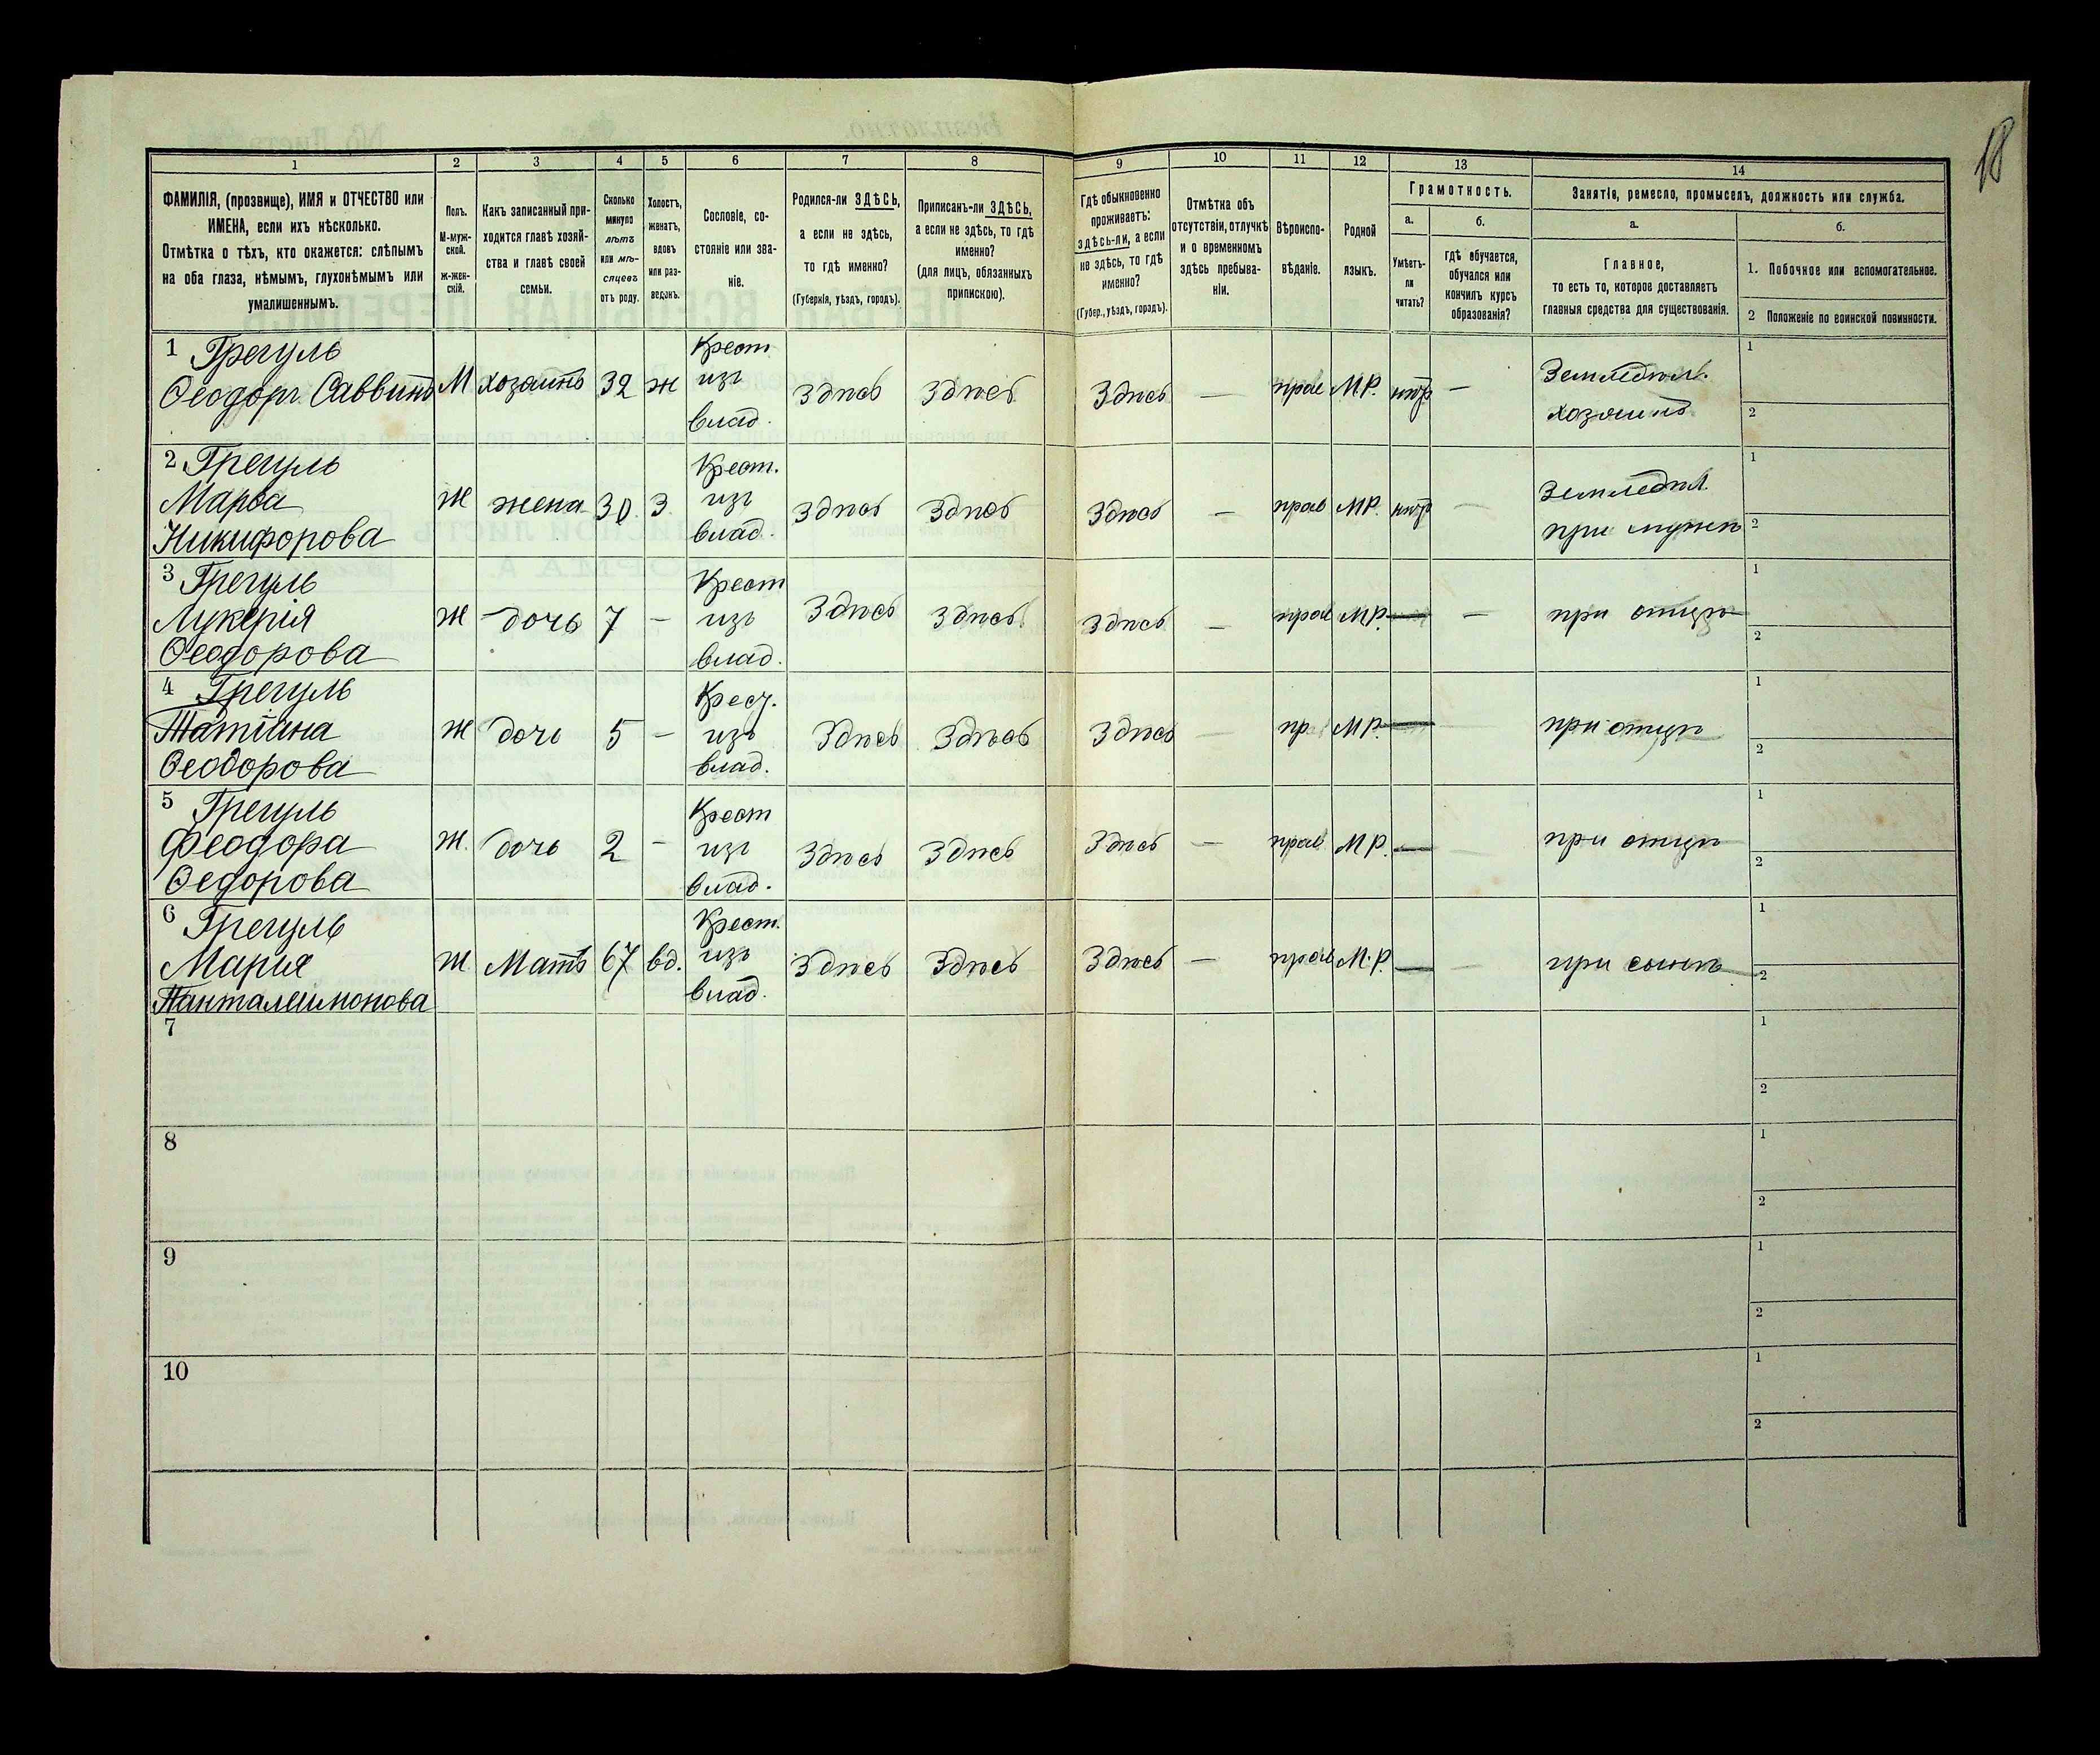 18
1 2 3 4 5 6 7 8 9 10 11 12 13 14
ФАМИЛІЯ, (прозвище), ИМЯ и ОТЧЕСТВО или
ИМЕНА, если ихъ нѣсколько.
Отмѣтка о тѣхъ, кто окажется: слѣпымъ
на оба глаза, нѣмымъ, глухонѣмымъ или
умалишеннымъ.
Полъ.
М-муж-
ской.
ж-жен-
скій.
Какъ записанный при-
ходится главѣ хозяй-
ства и главѣ своей
семьи.
Сколько
минуло
лѣтъ
или мѣ-
сяцевъ
отъ роду.
Холостъ,
женатъ,
вдовъ
или раз-
веденъ.
Сословіе, со-
стояніе или зва-
ніе.
Родился-ли ЗДѢСЬ,
а если не здѣсь,
то гдѣ именно?
(Губернія, уѣздъ, городъ).
Приписанъ-ли ЗДѢСЬ,
а если не здѣсь, то гдѣ
именно?
(для лицъ, обязанныхъ
припискою).
Гдѣ обыкновенно
проживаетъ:
здѣсь-ли, а если
не здѣсь, то гдѣ
именно?
(Губер., уѣздъ, городъ).
Отмѣтка объ
отсутствіи, отлучкѣ
и о временномъ
здѣсь пребыва-
ніи.
Вѣроиспо-
вѣданіе.
Родной
языкъ.
Грамотность.
а.
Умѣетъ-
ли
читать?
б.
гдѣ обучается,
обучался или
кончилъ курсъ
образованія?
Занятія, ремесло, промыселъ, должность или служба.
а.
Главное,
то есть то, которое доставляетъ
главныя средства для существованія.
б.
1. Побочное или вспомогательное.
2 Положеніе по воинской повинности.
1 Грегуль
Ѳеодоръ Саввинъ М хозяинъ 32 ж Крест. изъ влад. Здѣсь Здѣсь Здѣсь — прав М.Р. нѣтъ — Земледѣл. хозяинъ 1 2
2 Грегуль
Марѳа
Никифорова Ж жена 30 З Крест. изъ влад. Здѣсь Здѣсь Здѣсь — прав М.Р. нѣтъ — Земледѣл. при мужѣ 1 2
3 Грегуль
Лукерія
Ѳеодорова Ж дочь 7 — Крест изъ влад. Здѣсь Здѣсь Здѣсь — прав М.Р. — — при отцѣ 1 2
4 Грегуль
Татіана
Ѳеодорова Ж дочь 5 — Крест. изъ влад. Здѣсь Здѣсь Здѣсь — пр М.Р. — при отцѣ 1 2
5 Грегуль
Феодора
Ѳедорова Ж. дочь 2 — Крест изъ влад. Здѣсь Здѣсь Здѣсь — прав М.Р. — при отцѣ 1 2
6 Грегуль
Марія
Панталеимонова Ж Мать 67 вд. Крест. изъ влад. Здѣсь Здѣсь Здѣсь — прав М.Р. — при сынѣ 1 2
7 1 2
8 1 2
9 1 2
10 1 2